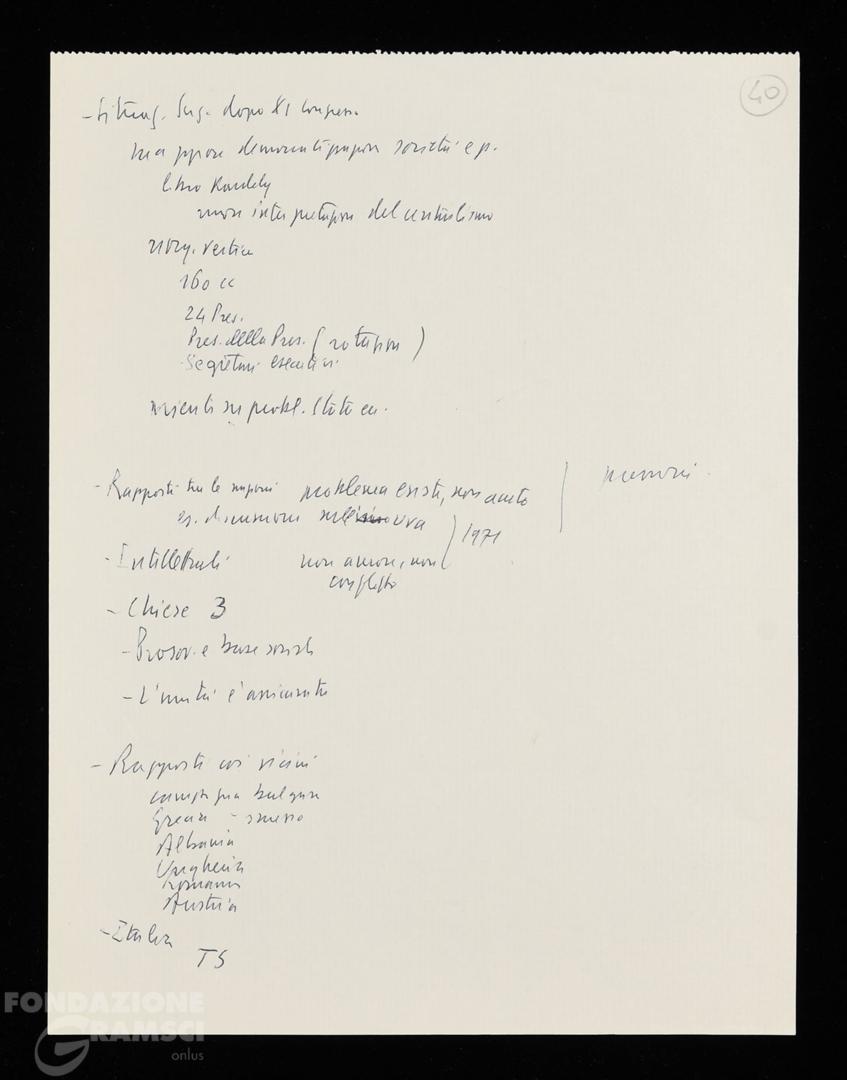 40
- Situaz. Jug. dopo XI congresso
maggiore democratizzazion società e p.
libro Kardelj
nuova interpretazion del centralismo
riorg. vertice
160 cc
24 Pres.
Pres. della Pres. (rotazion)
Segretari esecutivi
su probl. Stato ecc.
- Rapporti tra le nazioni problema esiste, non acuto
es. discussioni nuova
1971
- Intellettuali non ancora, non
conflitto
- Chiese 3
- e base sociale
- L'unità è assicurata
- Rapporti coi vicini
campagna bulgara
Grecia -
Albania
Ungheria
Romania
Austria
- Italia
TS
FONDAZIONE
GRAMSCI
onlus